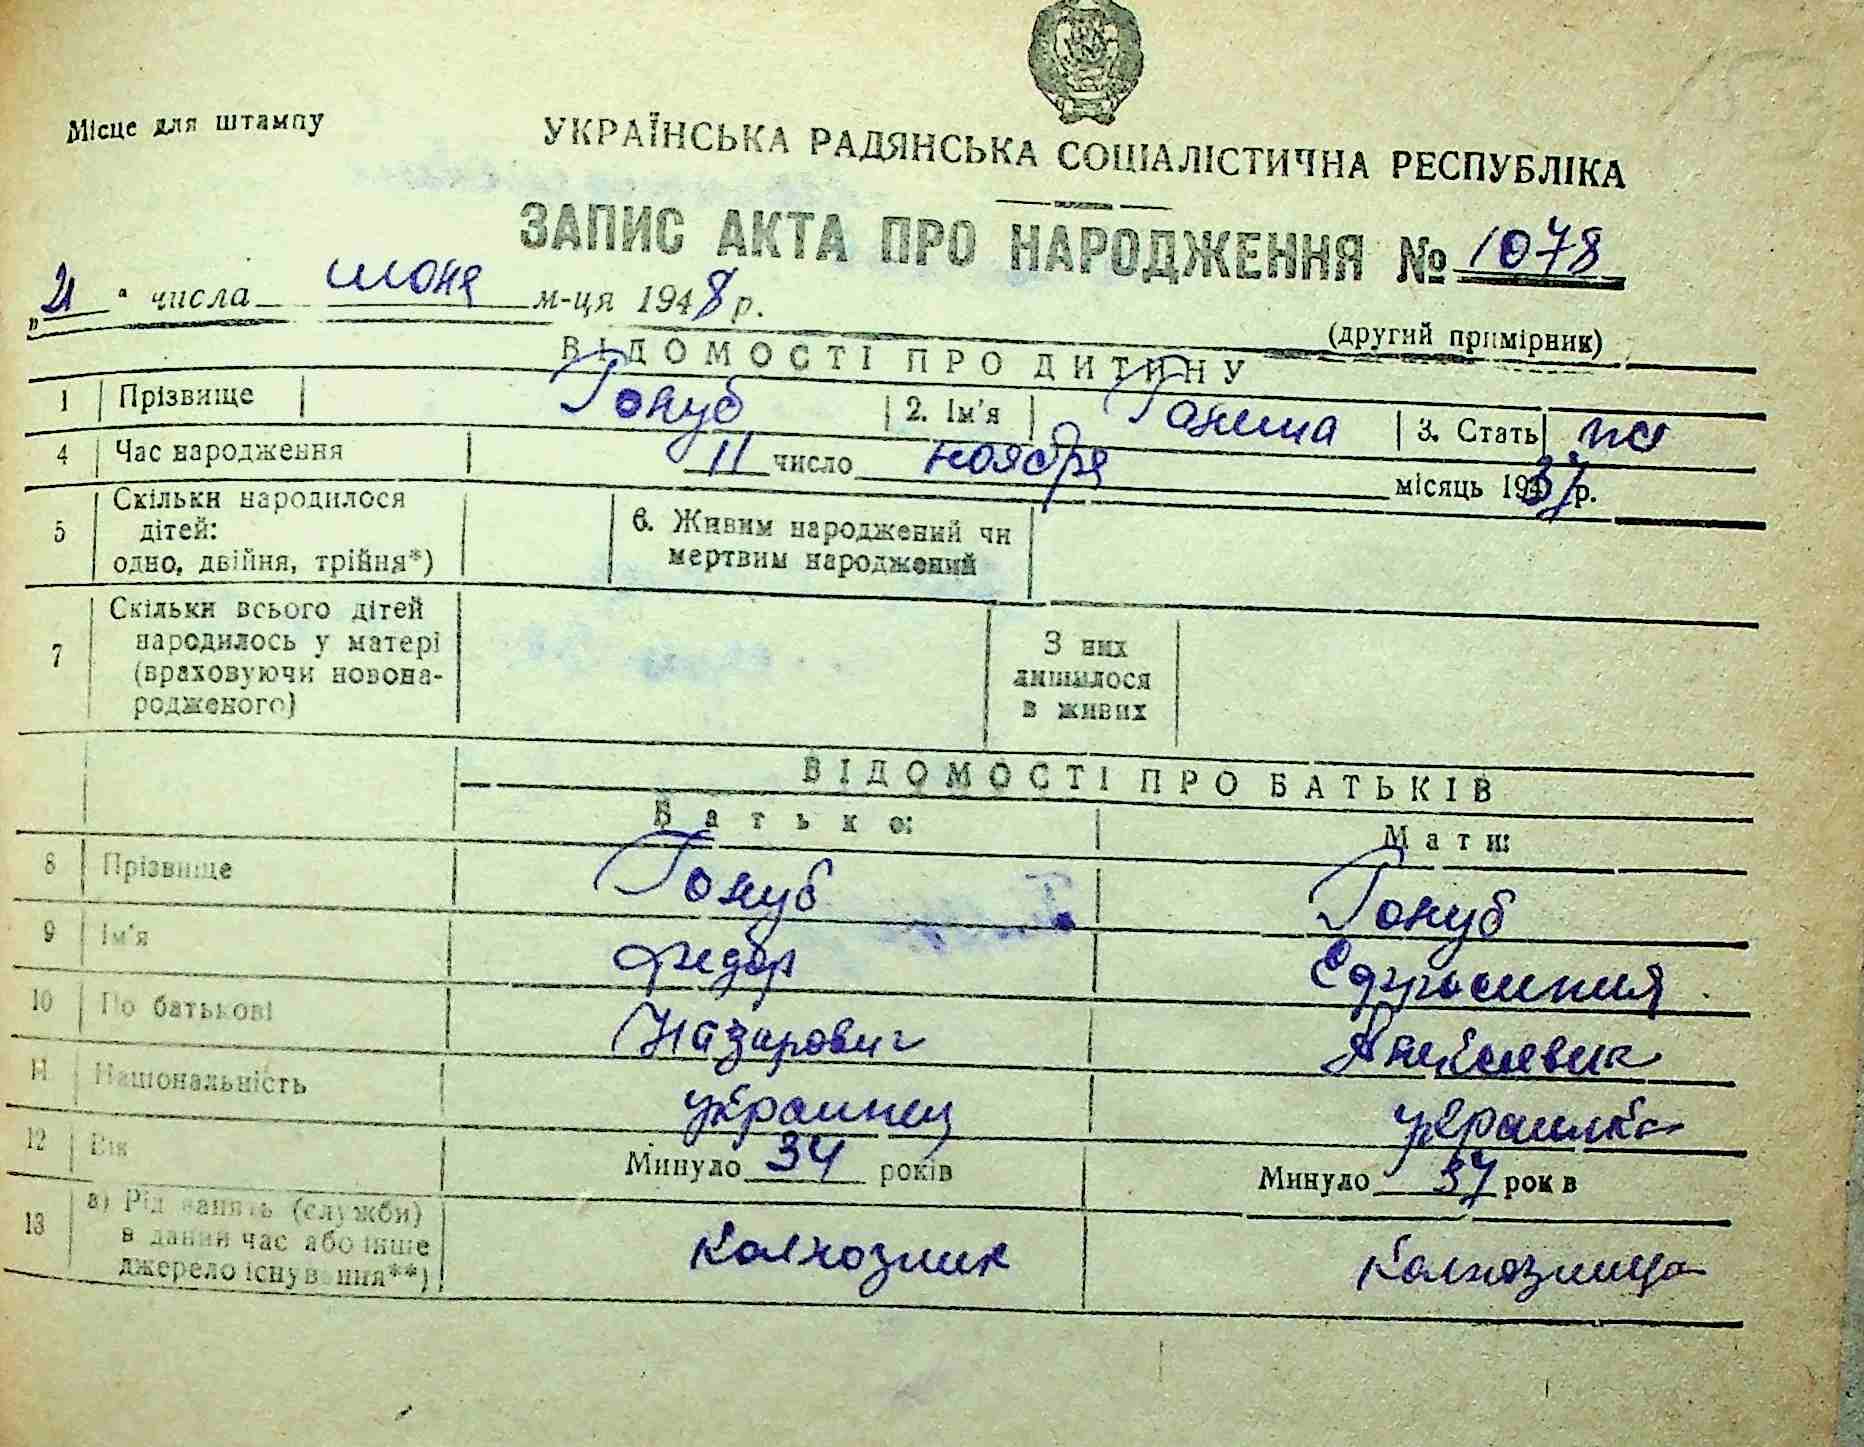 Місце для штампу
УКРАЇНСЬКА РАДЯНСЬКА СОЦІАЛІСТИЧНА РЕСПУБЛІКА
ЗАПИС АКТА ПРО НАРОДЖЕННЯ № 1078
"21" числа июня м-ця 1948 р.
(другий примірник)
ВІДОМОСТІ ПРО ДИТИНУ
1 Прізвище Голуб 2. Ім'я Галина 3. Стать жс
4 Час народження 11 число ноября місяць 1937 р.
5 Скільки народилося
дітей:
одно, двійня, трійня*)
6. Живим народжений чи
мертвим народжений
7 Скільки всього дітей
народилось у матері
(враховуючи новона-
родженого)
З них
лишилося
в живих
ВІДОМОСТІ ПРО БАТЬКІВ
Батько: Мати:
8 Прізвище Голуб Голуб
9 Ім'я Федор Ефросиния
10 По батькові Назарович Алексеевна
11 Національність украинец украинка
12 Вік Минуло 34 років Минуло 37 рок в
13 а) Рід занять (служби)
в даний час або інше
джерело існування**)
колхозник колхозница